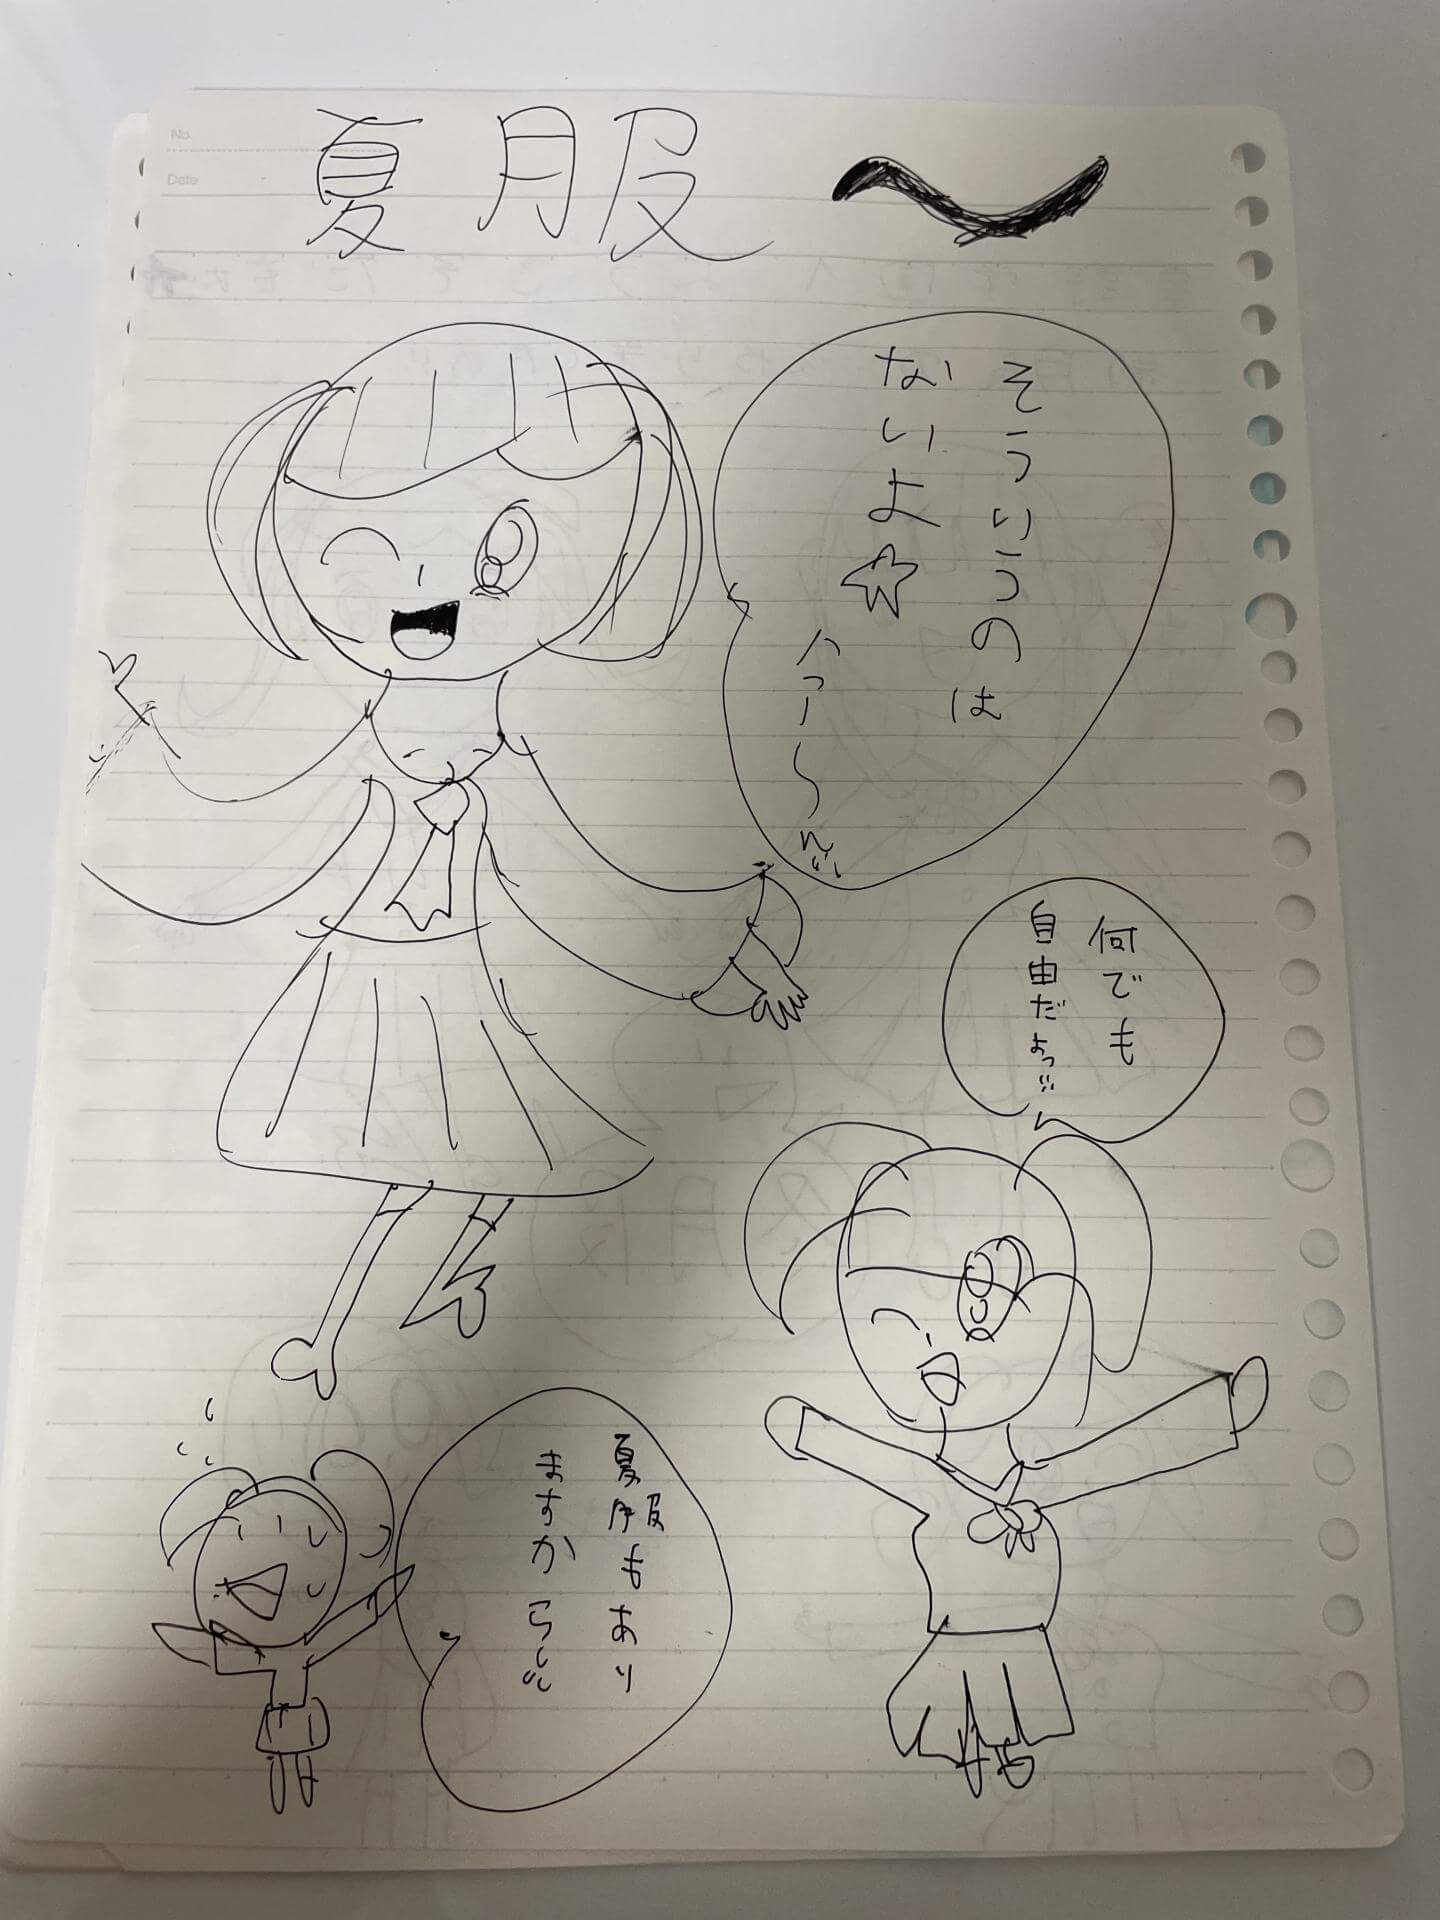 No.
Date
夏服〜
そういうのは
ないよ☆
何でも
自由だよっ!!
夏服もあり
ますから!!